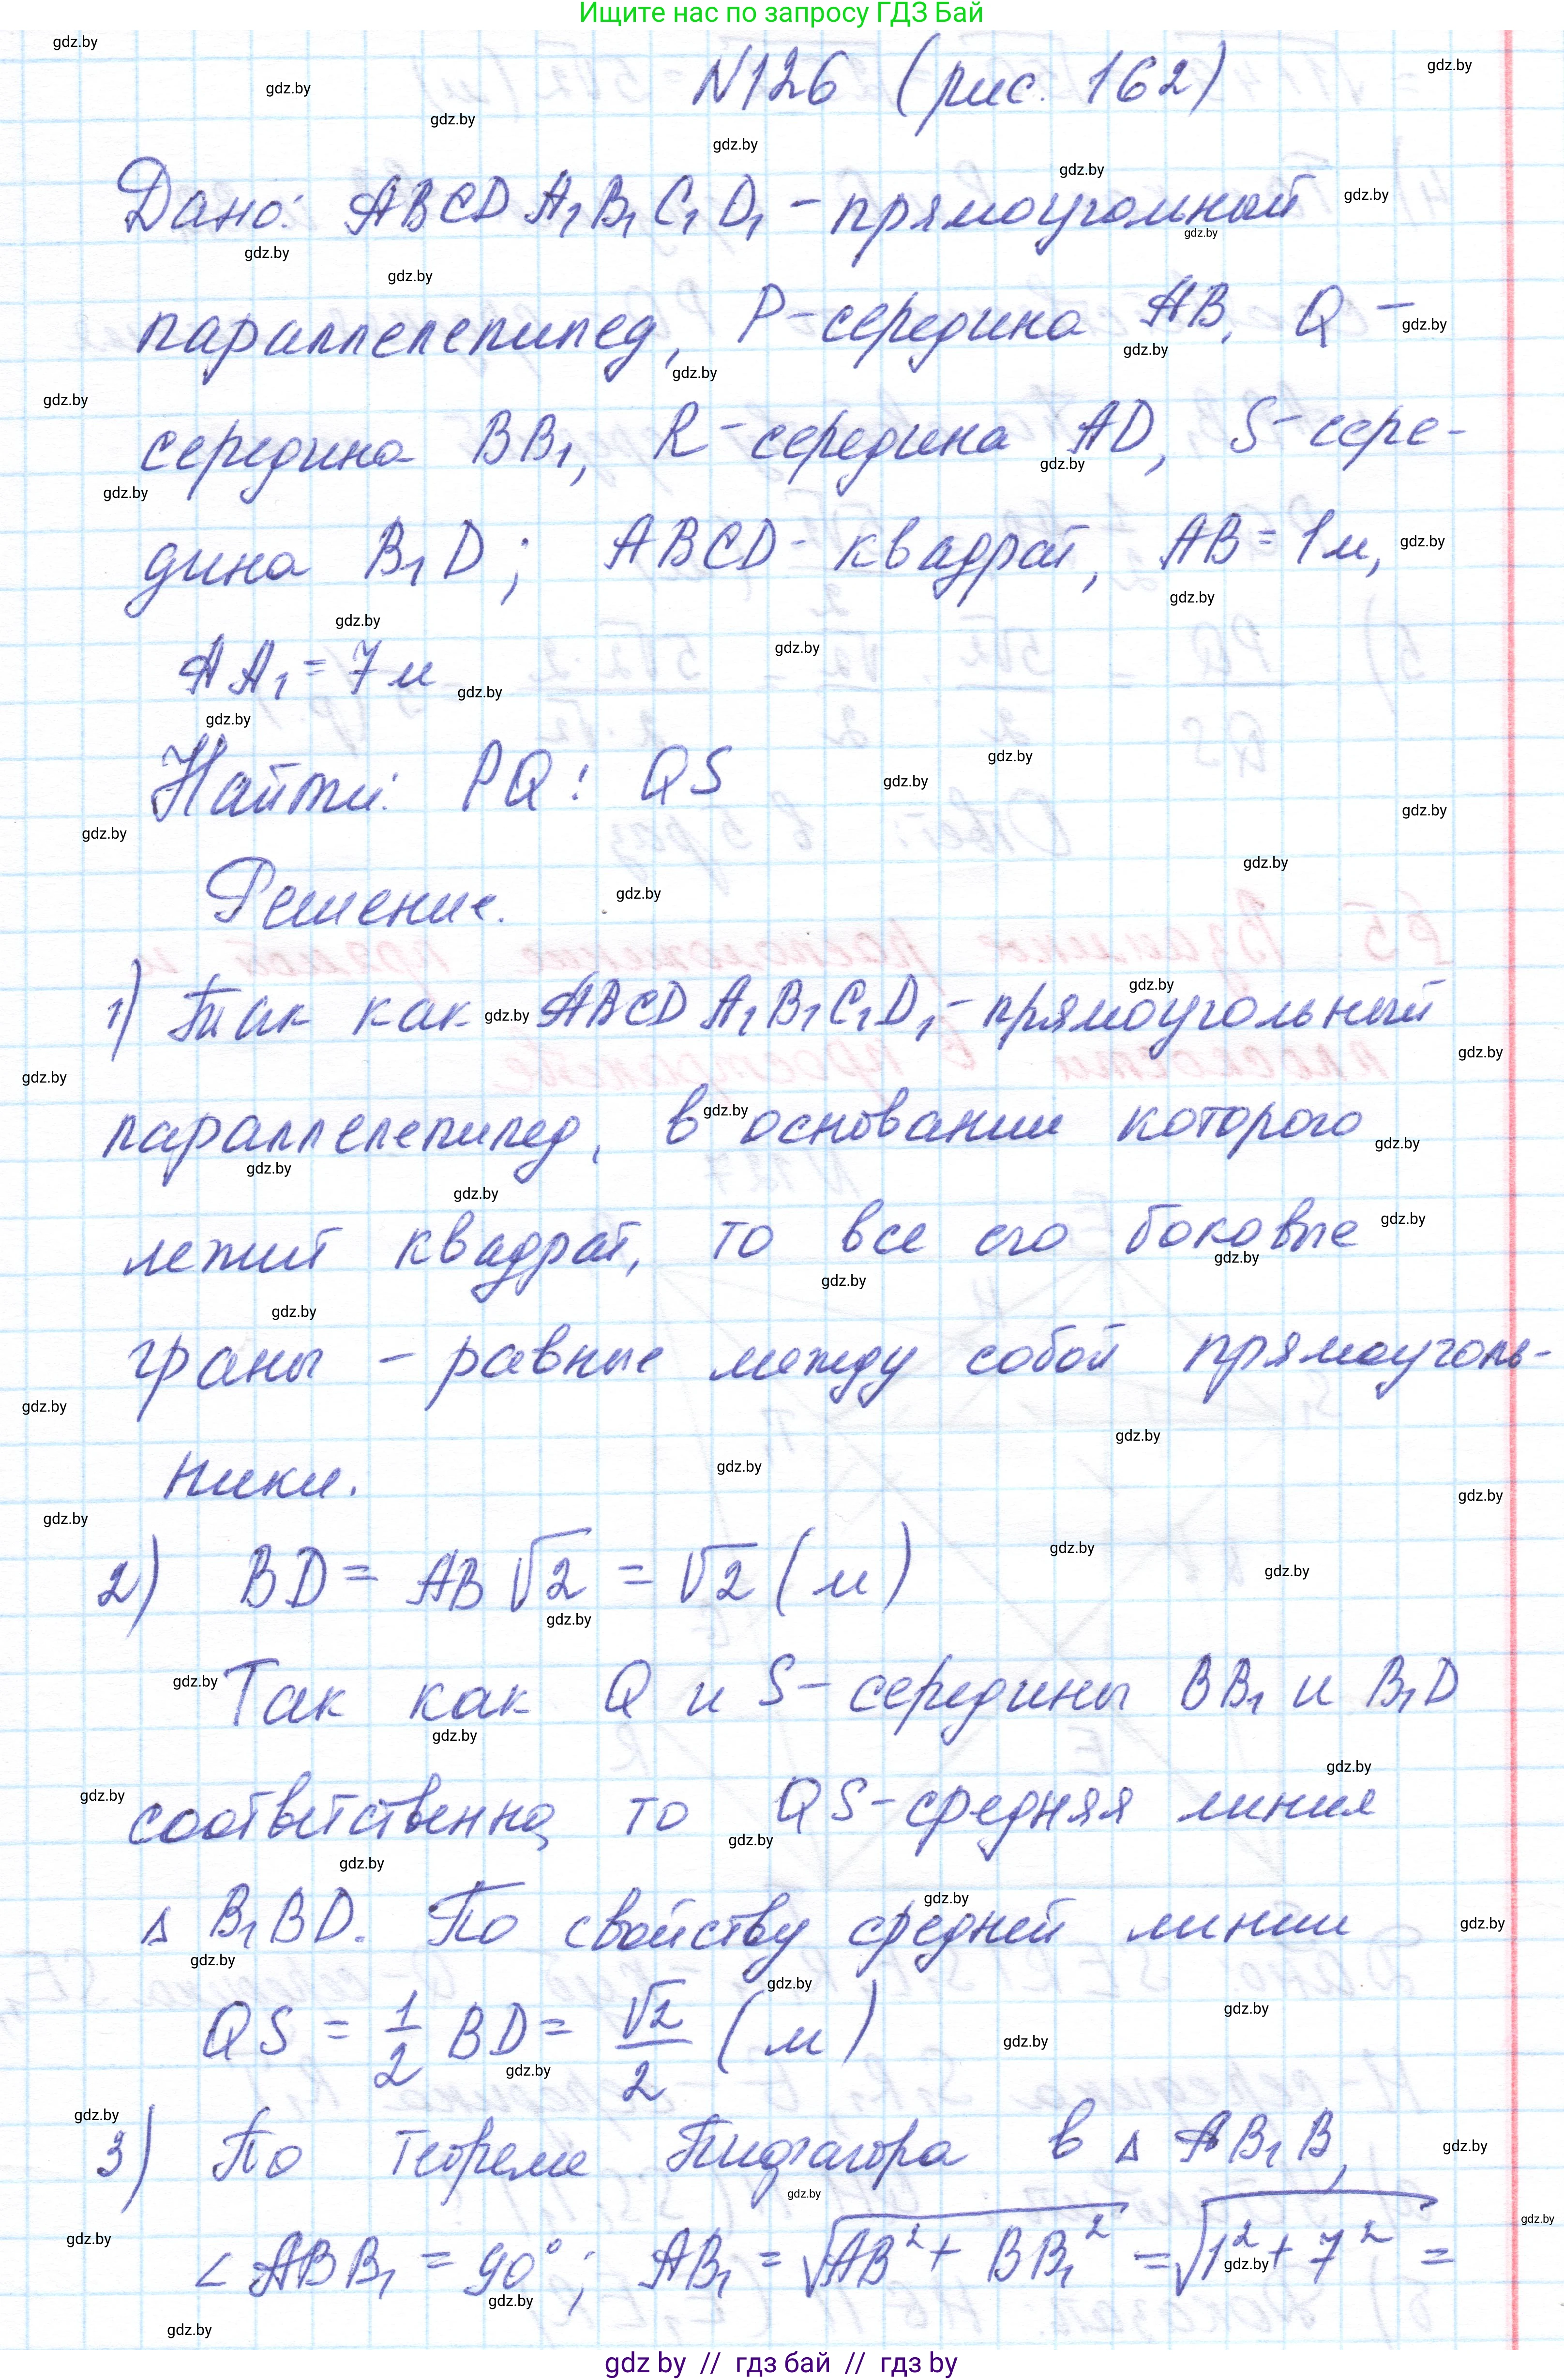 Ищите нас по запросу ГДЗ Бай
N126 (рис. 162)
Дано: ABCDA₁B₁C₁D₁ – прямоугольный
параллелепипед, P – середина AB, Q –
середина BB₁, R – середина AD, S – сере-
дина B₁D; ABCD – квадрат, AB = 1м,
AA₁ = 7м
Найти: PQ : QS
Решение.
1) Так как ABCDA₁B₁C₁D₁ – прямоугольный
параллелепипед, в основании которого
лежит квадрат, то все его боковые
граны – равные между собой прямоуголь-
ники.
2) BD = AB√2 = √2 (м)
Так как Q и S – середины BB₁ и B₁D
соответственно, то QS – средняя линия
Δ B₁BD. По свойству средней линии
QS = 1/2 BD = √2/2 (м)
3) По теореме Пифагора в Δ AB₁B,
∠ABB₁ = 90°; AB₁ = √(AB² + BB₁²) = √(1² + 7²) =
gdz by // гдз бай // гдз by